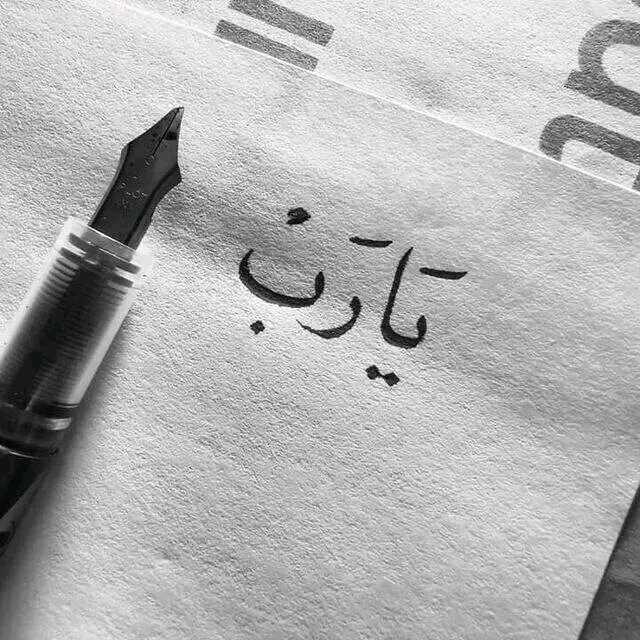 يَا رَبْ